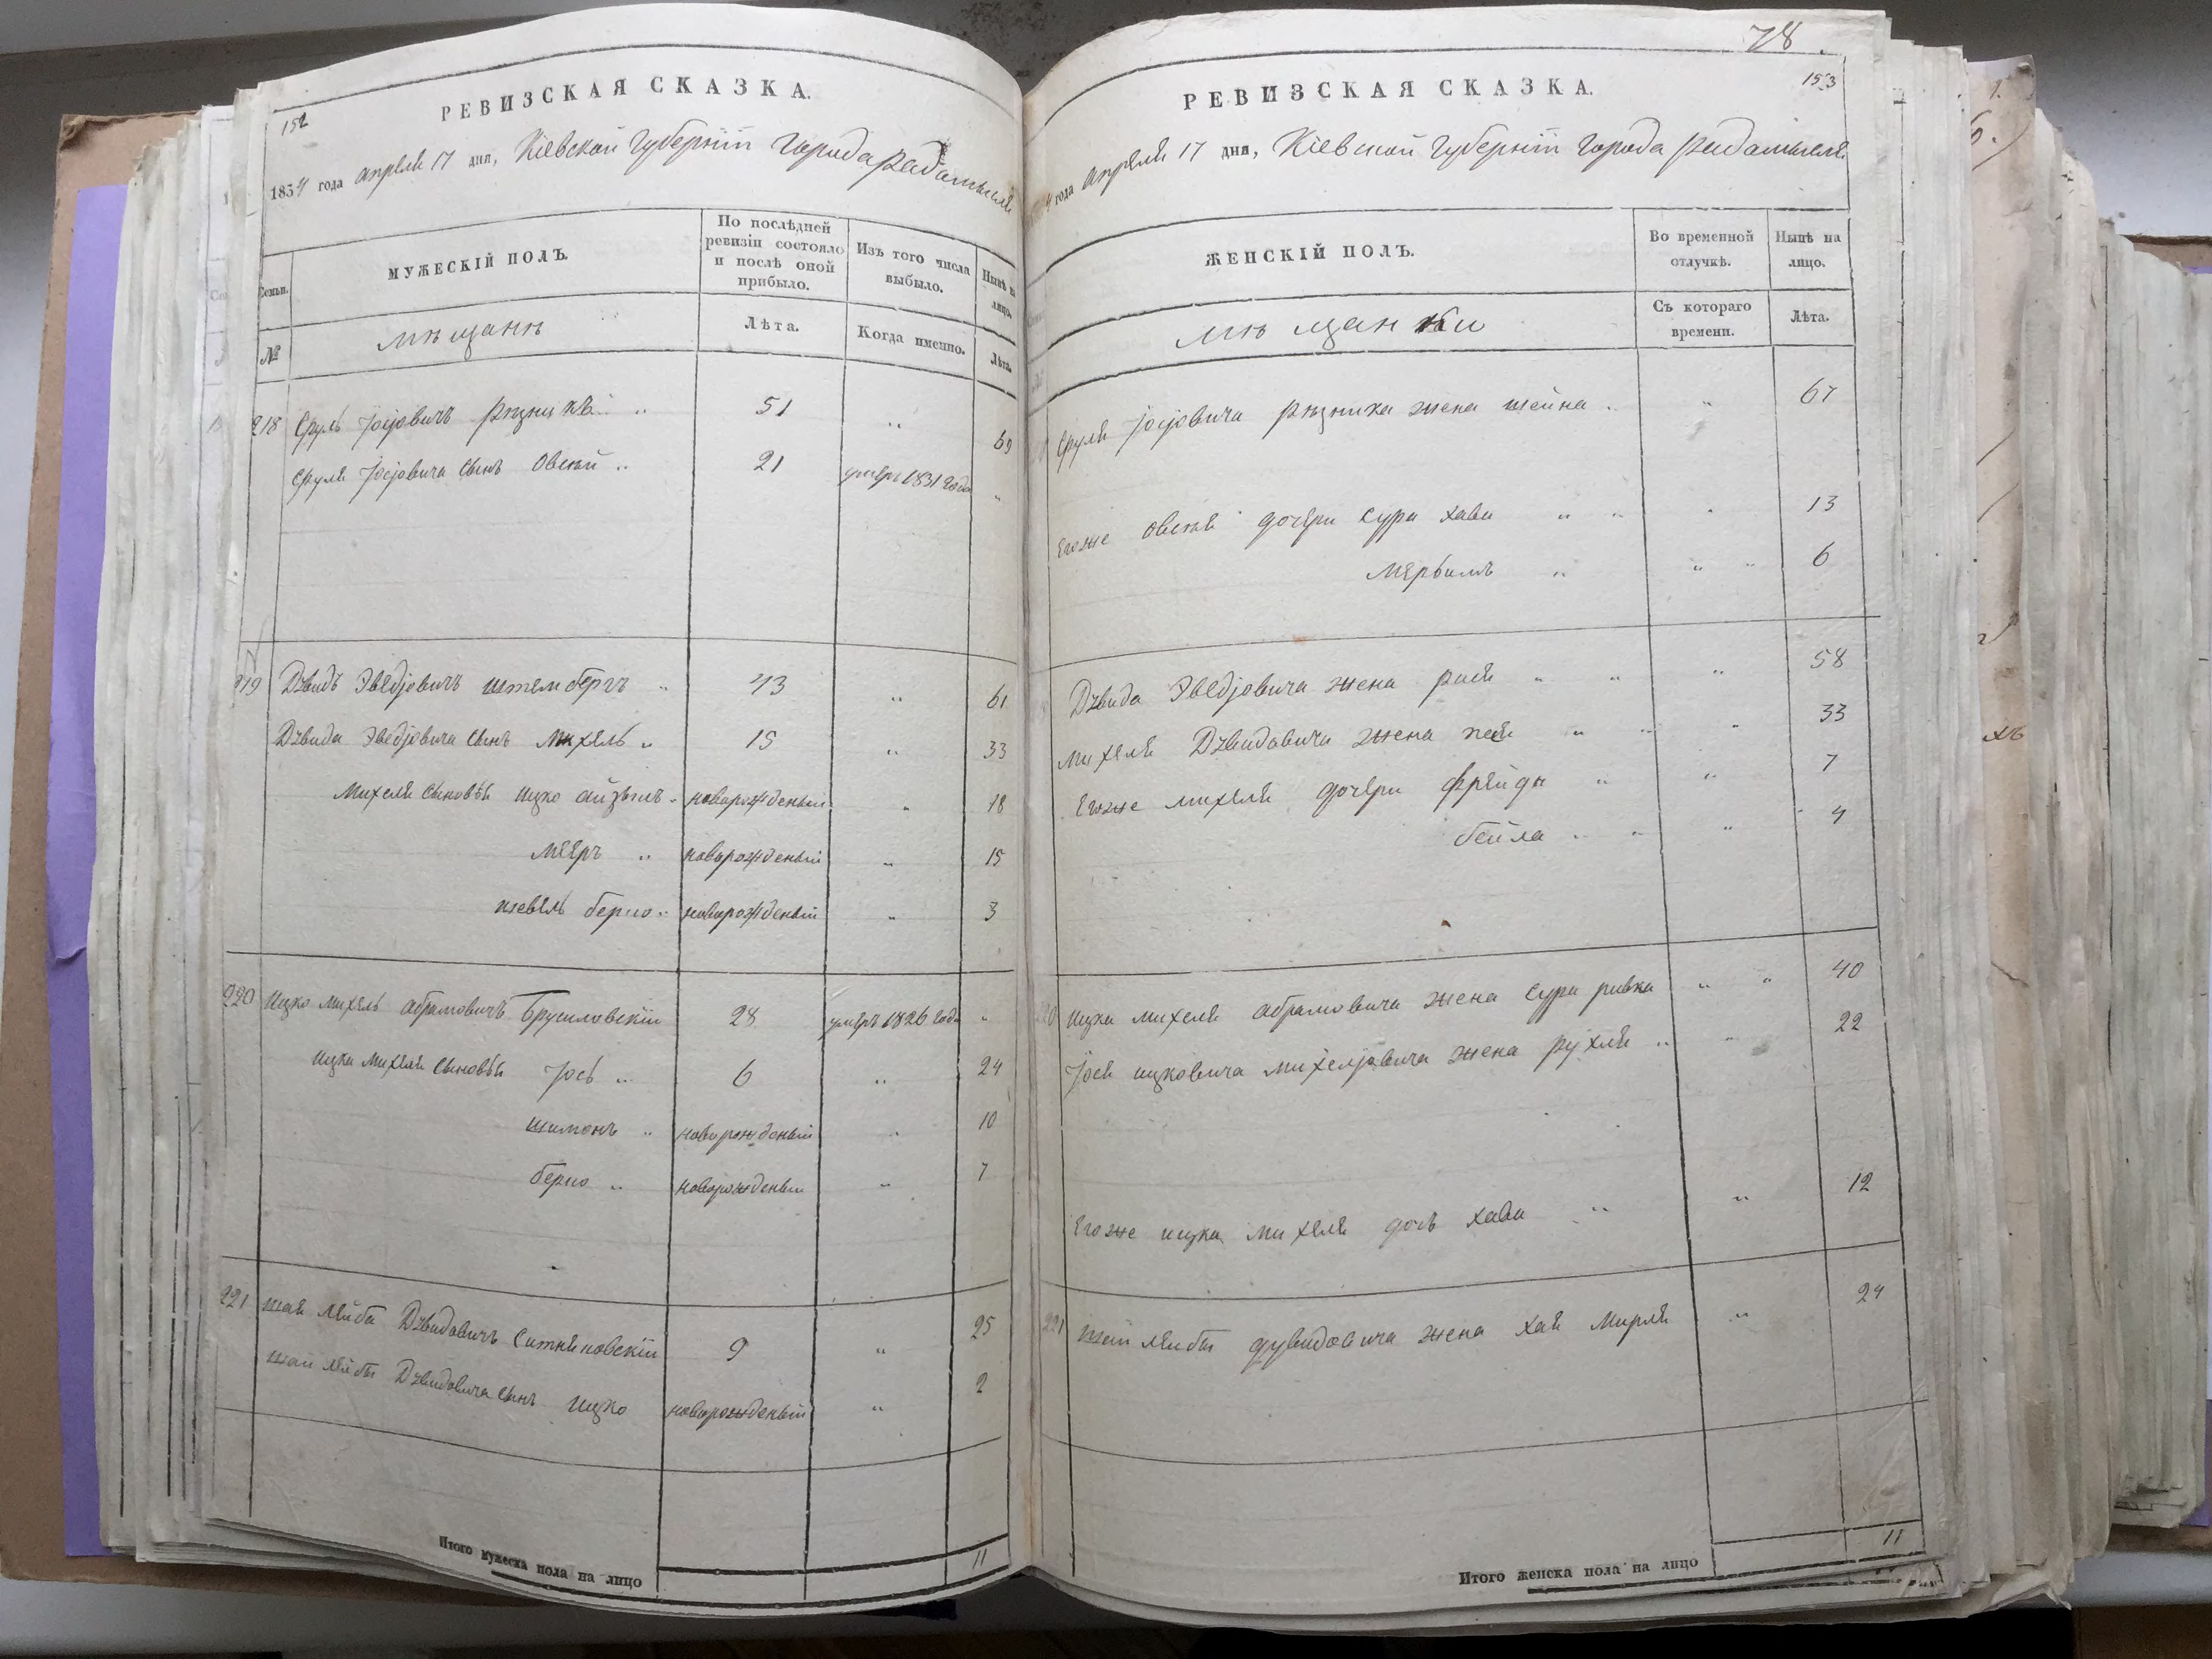 152
РЕВИЗСКАЯ СКАЗКА.
1834 года апреля 17 дня, Кіевской Губерніи города Радомысля
Семьи.
МУЖЕСКІЙ ПОЛЪ.
По послѣдней ревизіи состояло и послѣ оной прибыло.
Изъ того числа выбыло.
Нынѣ на лицо.
№
мѣщанѣ
Лѣта.
Когда именно.
Лѣта.
218 Сруль Іосіовичъ Рѣзникъ 51 „ 69
Сруля Іосіовича сынъ Овсѣй 21 умеръ 1831 года „
219 Дувидъ Эведіовичъ Штембергъ 43 „ 61
Дувида Эведіовича сынъ Михель 15 „ 33
Михеля сыновья Ицко Айзыкъ новорожденый „ 18
Меяръ новорожденый „ 15
Шевель Берко новорожденый „ 3
220 Ицко Михель Абрамовичъ Брусиловскій 28 умеръ 1826 года „
Ицка Михеля сыновья Іось 6 „ 24
Шимонъ новорожденый „ 10
Берко новорожденый „ 7
221 Шая Лейба Дувидовичъ Ситняковскій 9 „ 25
Шаи Лейбы Дувидовича сынъ Ицко новорожденый „ 2
Итого мужеска пола на лицо 11
78
153
РЕВИЗСКАЯ СКАЗКА.
года апреля 17 дня, Кіевской Губерніи города Радомысля
ЖЕНСКІЙ ПОЛЪ.
Во временной отлучкѣ.
Нынѣ на лицо.
мѣщанки
Съ котораго времени.
Лѣта.
Сруля Іосіовича Рѣзника жена Шейна „ 67
Егоже Овсѣя дочери Сура Хава „ 13
6
Дувида Эведіовича жена Рася „ 58
Михеля Дувидовича жена „ 33
Егоже Михеля дочери Фрейда „ 7
Бейла „ 4
Ицка Михеля Абрамовича жена Сура Ривка „ 40
Іося Ицковича Михеліовича жена Рухля „ 22
Егоже Ицка Михеля дочь Хава „ 12
221 Шаи Лейбы Дувидовича жена Хая Мирля „ 24
Итого женска пола на лицо 11